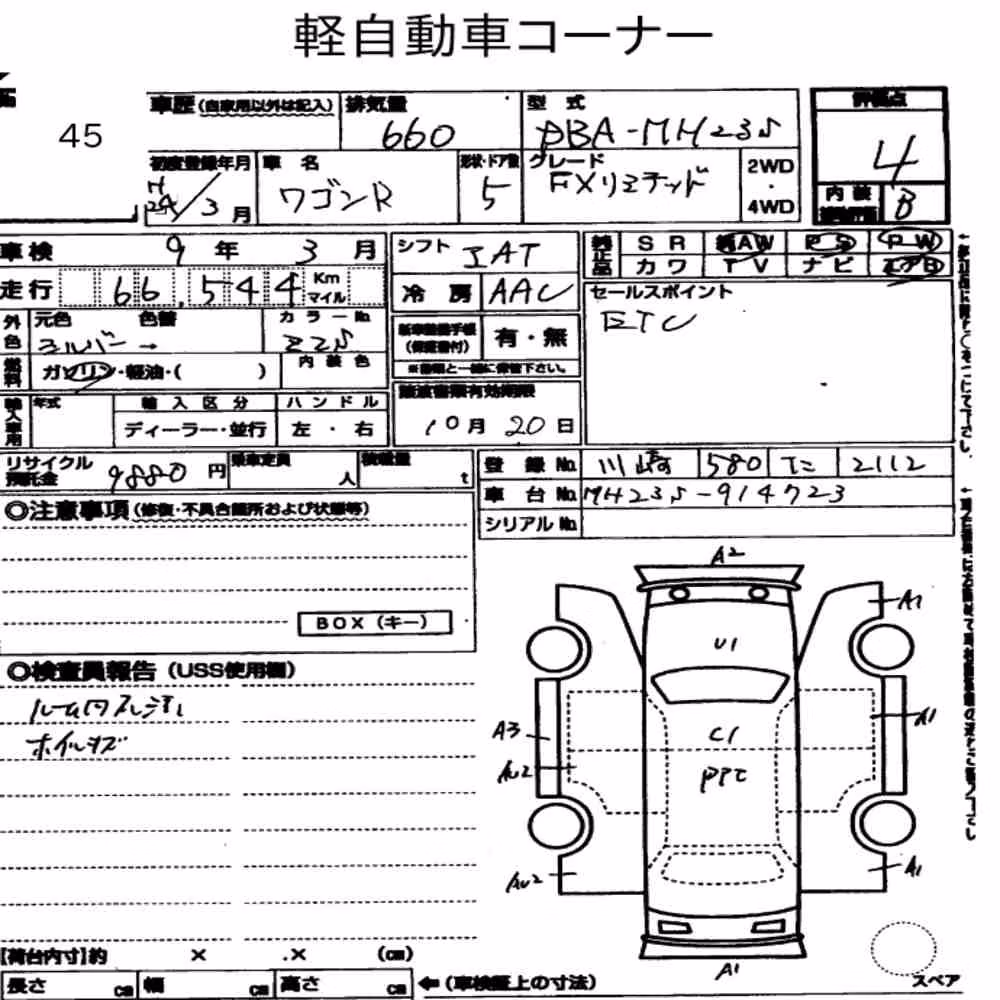 軽自動車コーナー
45
車歴 (自家用以外は記入) 排気量 660 型式 DBA-MH23S 評価点 4
初度登録年月 H24/3月 車名 ワゴンR 形状・ドア数 5 グレード FXリミテッド 2WD・4WD 内装 B
車検 9年 3月 シフト IAT 純正品 SR AW PS PW
カワ TV ナビ エアB
走行 66,544 Km マイル 冷房 AAC セールスポイント
ETC
外色 元色 シルバー 色替 → カラーNo Z2S
新車整備手帳 (保証書付) 有・無
※書類と一緒に保管下さい。
燃料 ガソリン・軽油・( ) 内装色
譲渡書類有効期限
10月 20日
輸入車用 年式 輸入区分 ハンドル
ディーラー・並行 左・右
リサイクル預託金 9880円 乗車定員 人 積載量 t
登録No. 川崎 580 2112
車台No. MH23S-914723
シリアルNo.
◎注意事項 (修復・不具合個所および状態等)
BOX (キー)
◎検査員報告 (USS使用欄)
ホイルキズ
A2
A1
U1
A3
C1
A1
AU2
PPT
AU2
A1
A1
スペア
[荷台内寸]約 × .× (cm)
長さ cm 幅 cm 高さ cm ←(車検証上の寸法)